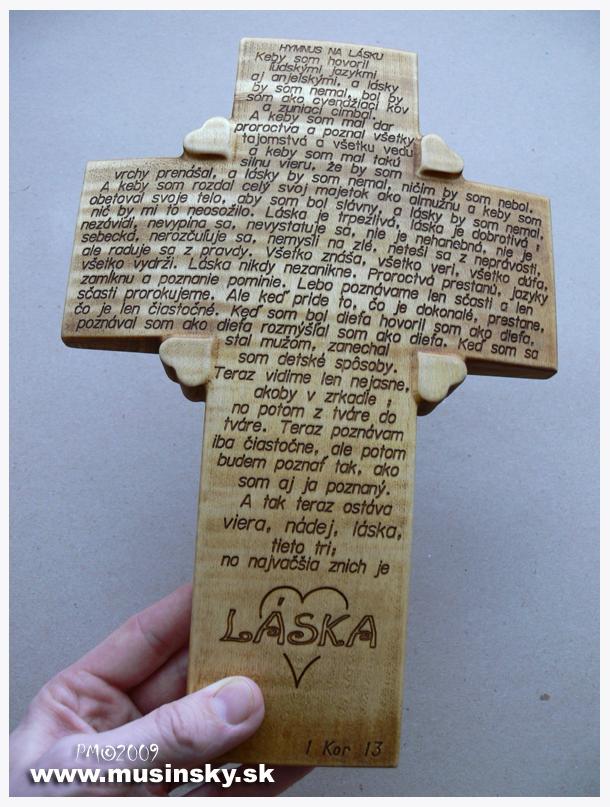 HYMNUS NA LÁSKU
Keby som hovoril
ľudskými jazykmi
aj anjelskými, a lásky
by som nemal, bol by
som ako cvendžiaci kov
a zuniaci cimbal.
A keby som mal dar
proroctva a poznal všetky
tajomstvá a všetku vedu
a keby som mal takú
silnu vieru, že by som
vrchy prenášal, a lásky by som nemal, ničím by som nebol.
A keby som rozdal celý svoj majetok ako almužnu a keby som
obetoval svoje telo, aby som bol slávny, a lásky by som nemal,
nič by mi to neosožilo. Láska je trpezlivá, láska je dobrotivá ;
nezávidí, nevypína sa, nevystatuje sa, nie je nehanebná, nie je
sebecká, nerozčuľuje sa, nemyslí na zlé, neteší sa z neprávosti,
ale raduje sa z pravdy. Všetko znáša, všetko verí, všetko dúfa,
všetko vydrží. Láska nikdy nezanikne. Proroctvá prestanú, jazyky
zamĺknu a poznanie pominie. Lebo poznávame len sčasti a len
sčasti prorokujeme. Ale keď príde to, čo je dokonalé, prestane,
čo je len čiastočné. Keď som bol dieťa hovoril som ako dieťa,
poznával som ako dieťa rozmýšľal som ako dieťa. Keď som sa
stal mužom, zanechal
som detské spôsoby.
Teraz vidíme len nejasne,
akoby v zrkadle ;
no potom z tváre do
tváre. Teraz poznávam
iba čiastočne, ale potom
budem poznať tak, ako
som aj ja poznaný.
A tak teraz ostáva
viera, nádej, láska,
tieto tri;
no najväčšia znich je
LÁSKA
1 Kor 13
PM©2009
www.musinsky.sk